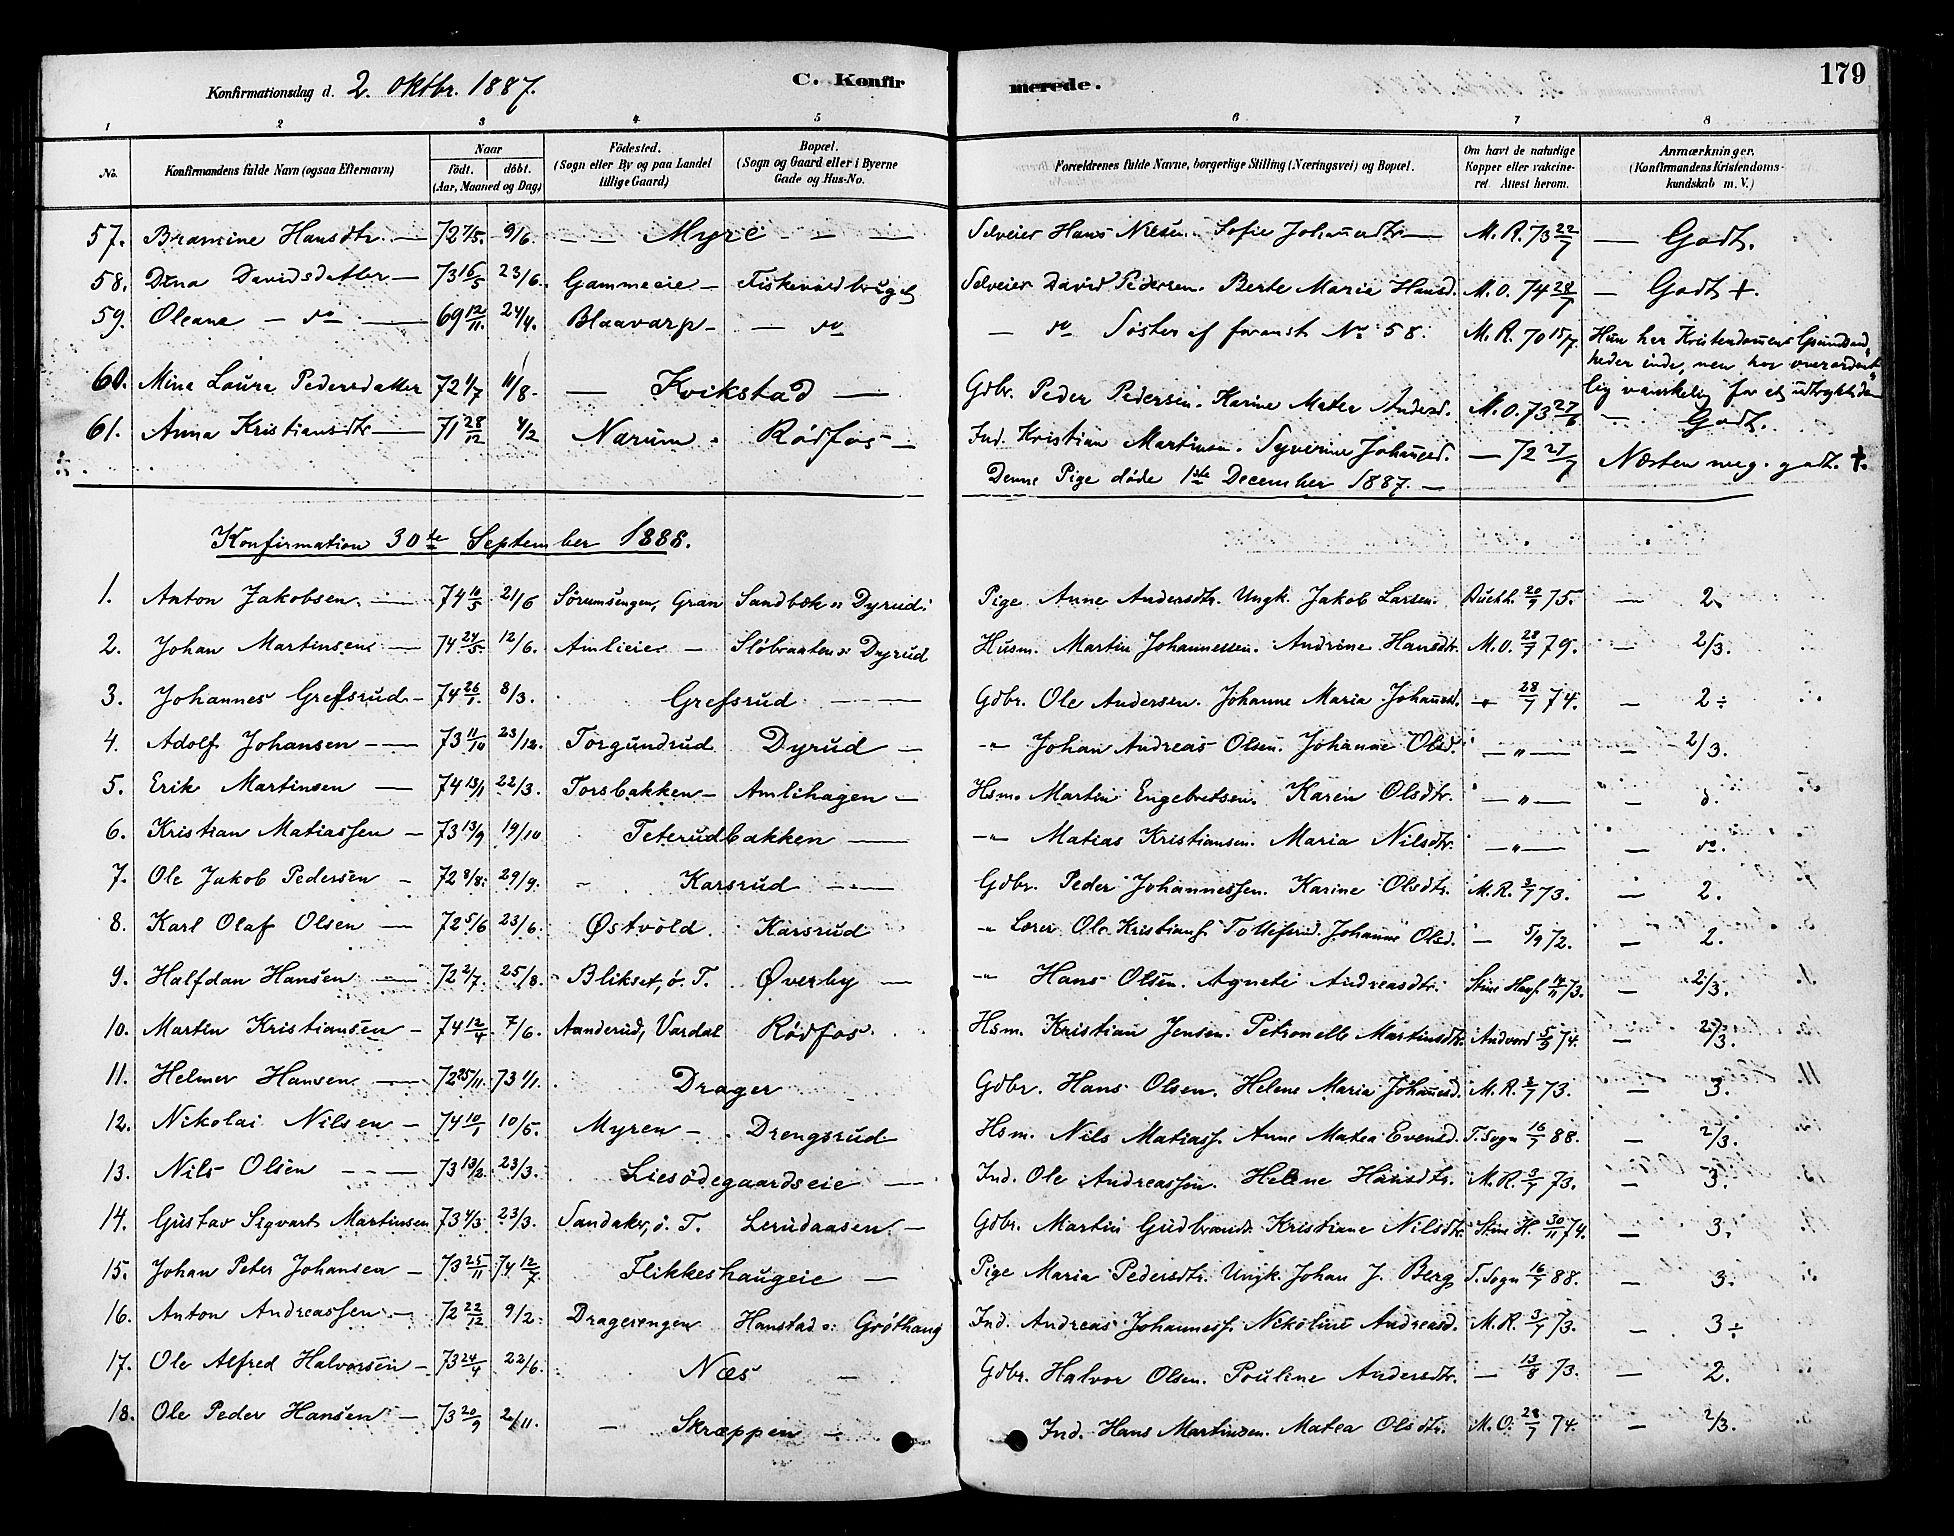 179
Konfirmationsdag d. 2. Oktbr. 1887. C. Konfirmerede.
1 2 3 4 5 6 7 8
No. Konfirmandens fulde Navn (ogsaa Efternavn) Naar födt. döbt. (Aar, Maaned og Dag) Födested. (Sogn eller By og paa Landet tillige Gaard) Bopæl. (Sogn og Gaard eller i Byerne Gade og Hus-No. Forældrenes fulde Navne, borgerlige Stilling (Næringsvei) og Bopæl. Om havt de naturlige Kopper eller vakcineret. Attest herom. Anmærkninger. (Konfirmandens Kristendomskundskab m. V.)
57. Bramine Hansdtr. — 72 7/5. 9/6. — — Myre — — — Selveier Hans Nilsen. Sofie Johansdtr — M. R. 73 22/7 — Godt.
58. Dina Davidsdatter — 73 16/5 23/6. Gammeeie — Selveier David Pedersen. Berte Maria Hansd. M. O. 74 28/7 — Godt +.
59. Oleane — do — 69 12/11. 24/4. Blaavarp — — do — do Søster af foranst. No 58. M. R. 70 15/7. Hun har Kristendommens
inde, men har
lig vanskelig for at
60. Mina Laura Pedersdatter 72 1/7 11/8. — Kvikstad — Gdbr. Peder Pedersen. Karine Matea Andersd. M. O. 73 27/6 — Godt.
61. Anna Kristiansdtr — 71 28/12 4/2 Nærum. Rödfos — Ind. Kristian Martinsen. Syverine Johansd. — 72 27/7 Næsten meg. godt. +.
Denne Pige døde 1ste December 1887. —
Konfirmation 30te September 1888.
1. Anton Jakobsen. — 74 10/5 21/6 Sörumsengen, Gran Sandbæk u. Dyrud. Pige Anne Andersdtr. Ungk. Jakob Larsen. Buchh. 20/9 75. — 2.
2. Johan Martinsen — 74 24/5 12/6. Amlieie — Slöbraaten u. Dyrud Husm. Martin Johannessen. Andrine Hansdtr. M. O. 28/7 79. — 2/3.
3. Johannes Grefsrud — 74 26/1. 8/3. Grefsrud — Gdbr. Ole Andersen. Johanne Maria Johansd. " 28/7 74. — 2÷
4. Adolf Johansen — 73 11/10 23/12. Torgundrud Dyrud — " Johan Andreas Olsen. Johanne Olsd. — " — — 2/3.
5. Erik Martinsen — 74 13/1 22/3. Torsbakken — Amlihagen — Hsm. Martin Engebretsen. Karen Olsdtr. — " — — 3.
6. Kristian Matiassen — 73 13/9 19/10 Teterudbakken — " Matias Kristiansen. Maria Nilsdtr. — " — — do.
7. Ole Jakob Pedersen — 72 8/8. 29/9. Karsrud — Gdbr. Peder Johannessen. Karine Olsdtr. M. R. 3/7 73. — 2.
8. Karl Olaf Olsen — 72 5/6 23/6. Østvold. Karsrud " Lærer Ole Kristians. Johanne Olsd. — 5/9 72. — 2.
9. Halfdan Hansen — 72 2/7. 25/8. Blikset, ö. T. Øverby — " Hans Olsen. Agnete Andreasdtr. Stine Hans. 12/11 73. — 2/3.
10. Martin Kristiansen — 74 12/4 7/6. Aanderud, Vardal Rödfos. Hsm. Kristian Jensen. Petronelle Martinsdtr. Andvord 5/9 74. — 2/3.
11. Helmer Hansen — 72 25/11. 73 1/1. Drager Gdbr. Hans Olsen. Helene Maria Johansd. M. R. 3/7 73. — 3.
12. Nikolai Nilsen — 74 10/1 10/5. Myren — Drengsrud Hsm. Nils Matiass. Anne Matea Evensd. T. Sogn 16/7 88. — 2/3.
13. Nils Olsen — 73 13/2. 23/3. Liesödegaardseie — Ind. Ole Andreassen. Helene Hansdtr. M. R. 3/7 73. — 3.
14. Gustav Sigvart Martinsen 73 4/3. 23/3. Sandaker, ö. T. Lerudaasen — Gdbr. Martin Gudbrands. Kristiane Nilsdtr. Stine H. 30/11 74. — 3.
15. Johan Peter Johansen — 73 25/11 74 12/7. Flikkeshaugeie — Pige Maria Pedersdtr. Ungk. Johan J. Berg T. Sogn 16/7 88. — 3.
16. Anton Andreassen — 72 22/12 9/2. Dragerengen Hanstad u. Gröthaug Ind. Andreas Johanness. Nikoline Andreasd. M. R. 3/7 73. — 3÷
17. Ole Alfred Halvorsen — 73 24/4 22/6. Næs — Gdbr. Halvor Olsen. Pouline Andersdtr. — 13/8 73. — 2.
18. Ole Peder Hansen — 73 20/9 2/11. — Skræppen — Ind. Hans Martinsen. Matea Olsdtr. M. O. 28/7 74. — 2/3.